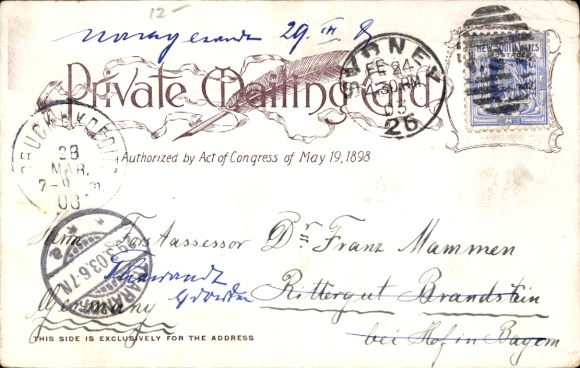 12-
29. III.
Private Mailing Card
Authorized by Act of Congress of May 19, 1898
SYDNEY
FE 24
4.30PM
03
26
NEW SOUTH WALES
28
MAR.
03
29.3.03.6-7N.
THARANDT
Herrn Forstassessor Dr Franz Mammen
Tharandt
Germany
Dresden
Rittergut Brandstein
bei Hof in Bayern
THIS SIDE IS EXCLUSIVELY FOR THE ADDRESS